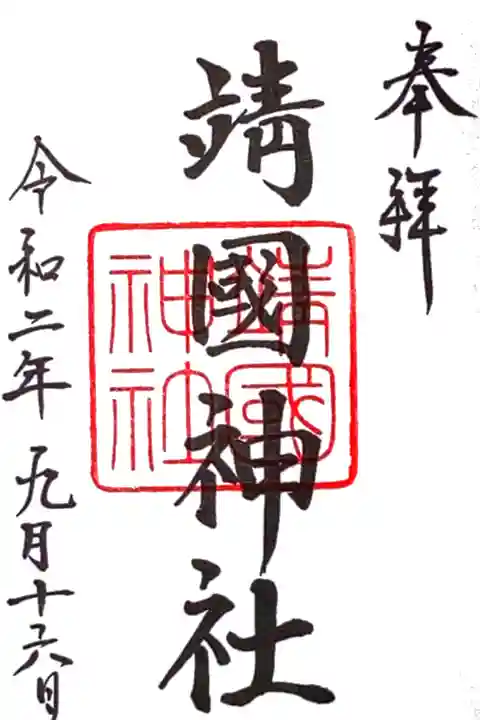 奉拝
靖國神社
靖国神社
令和二年九月十六日